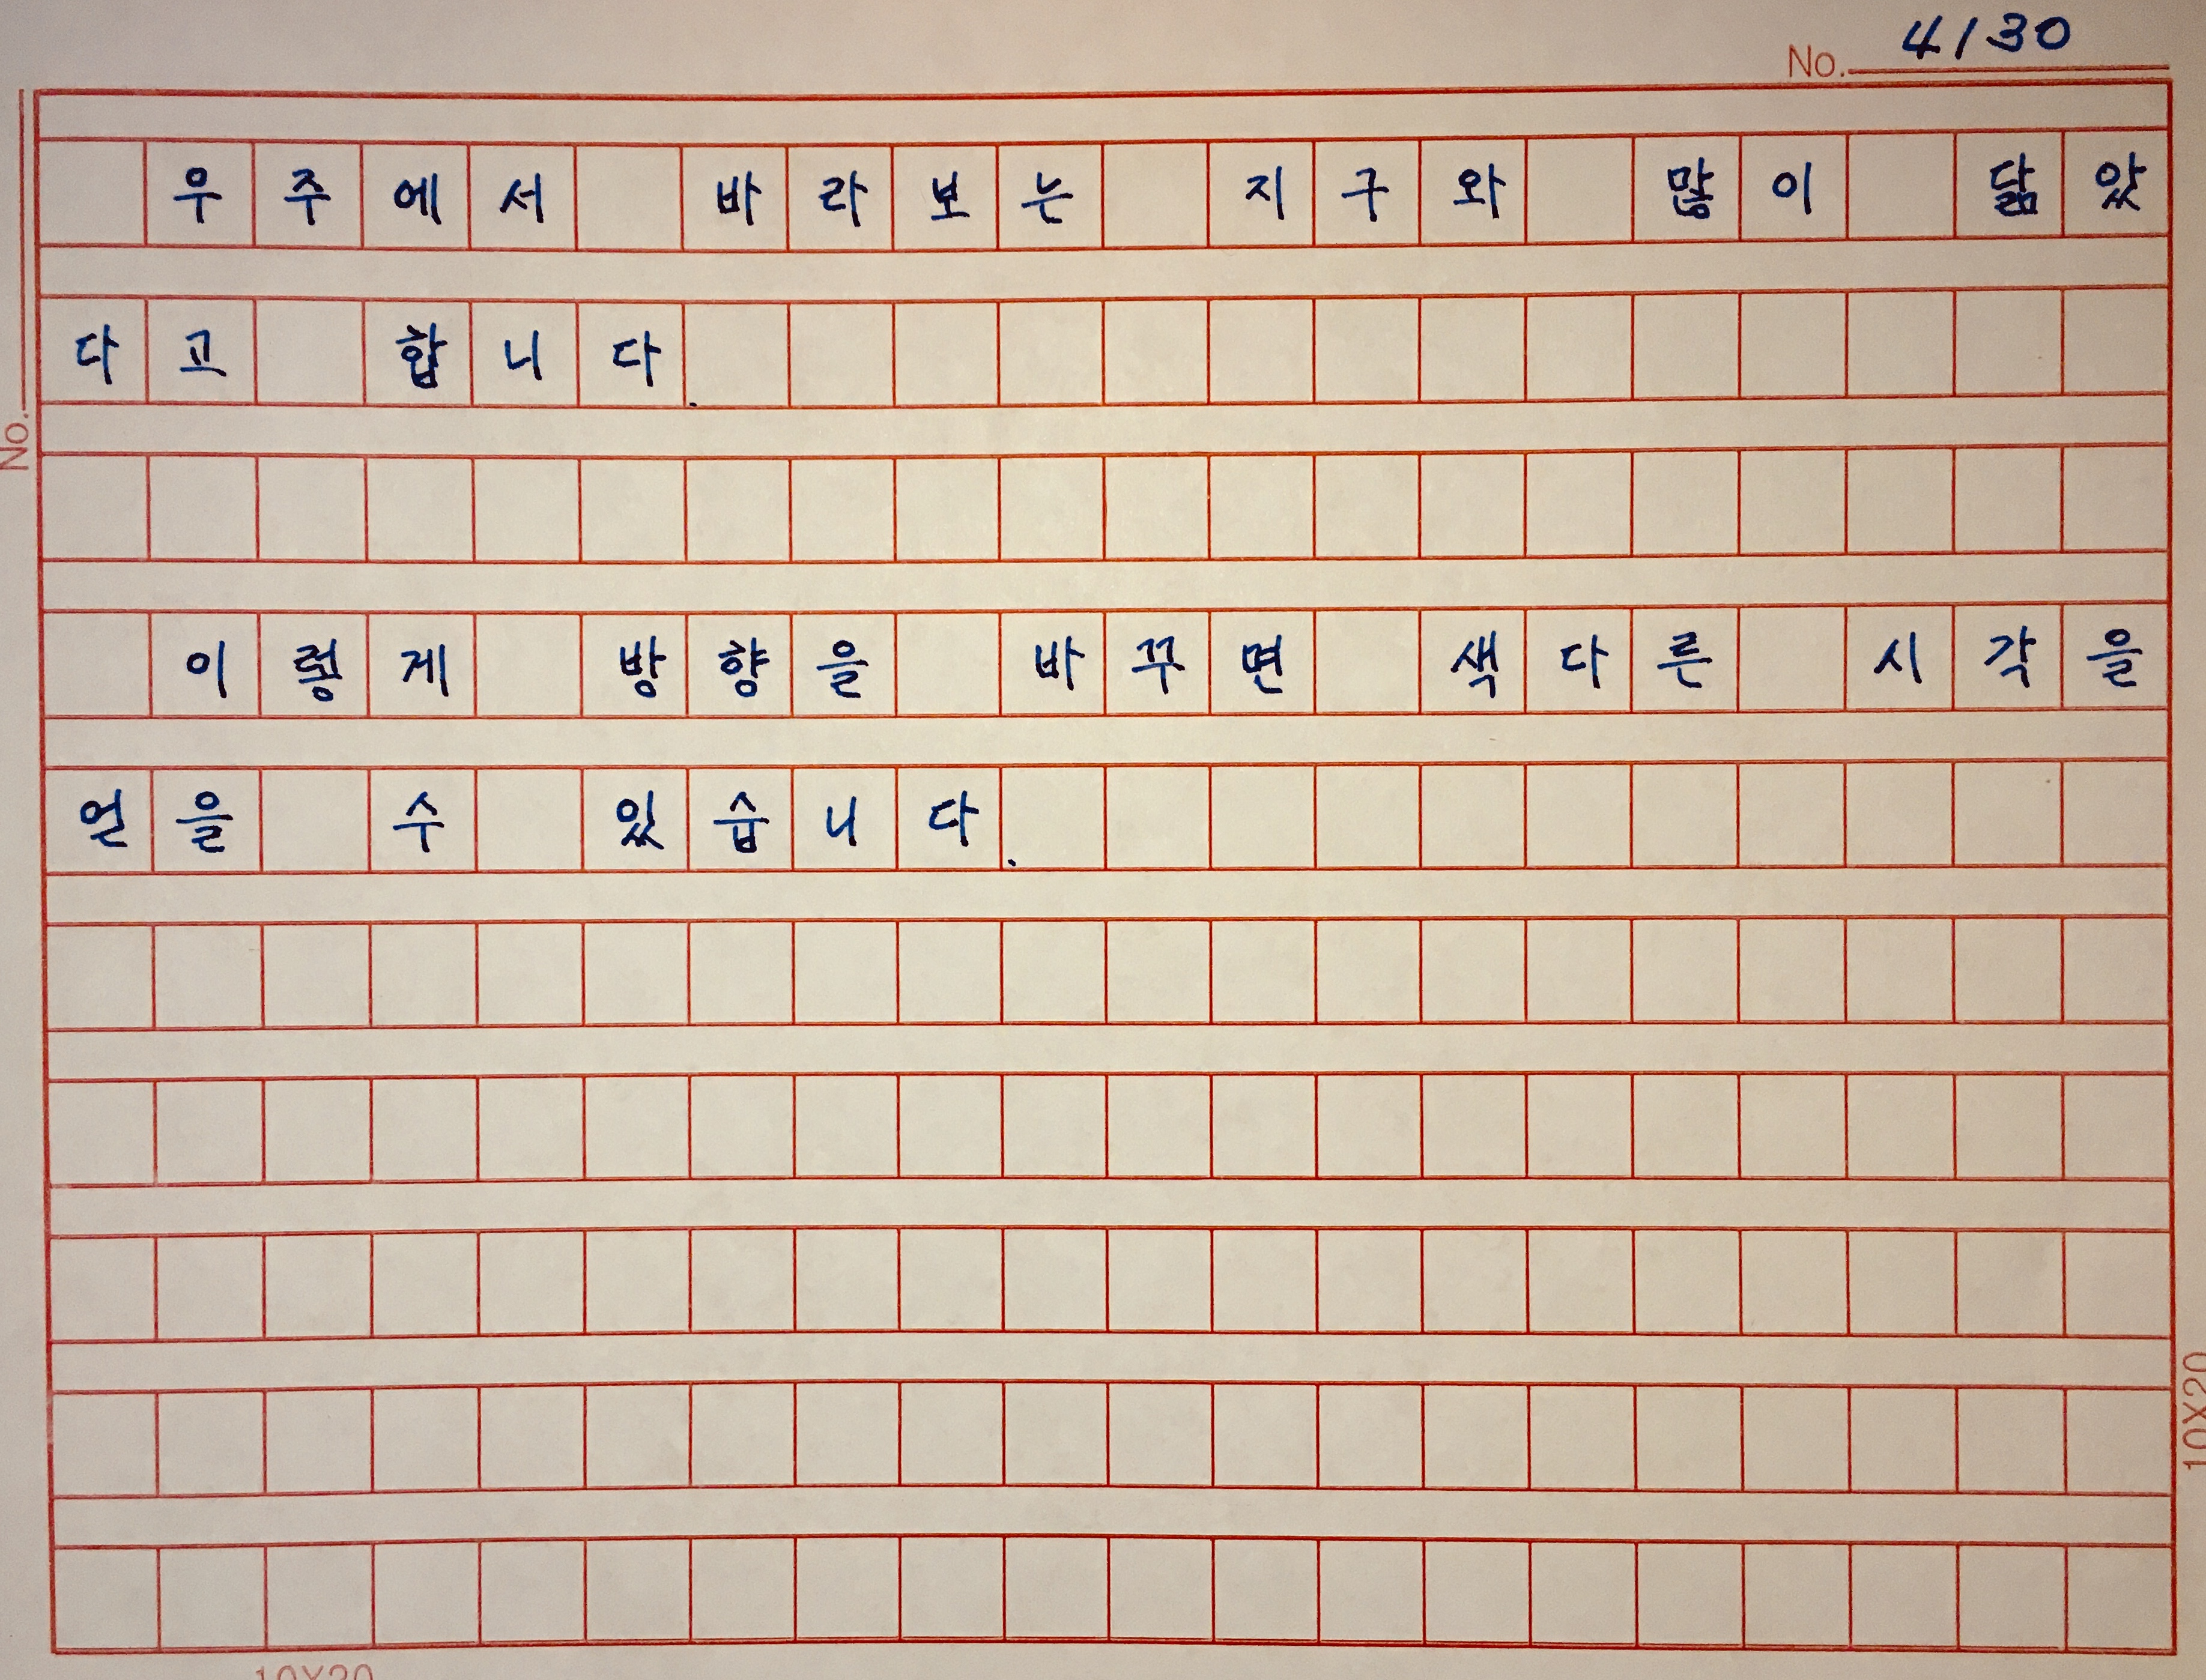 No. 4/30
우주에서 바라보는 지구와 많이 닮았
다고 합니다.
이렇게 방향을 바꾸면 색다른 시각을
얻을 수 있습니다.
No.
10X20
10X20